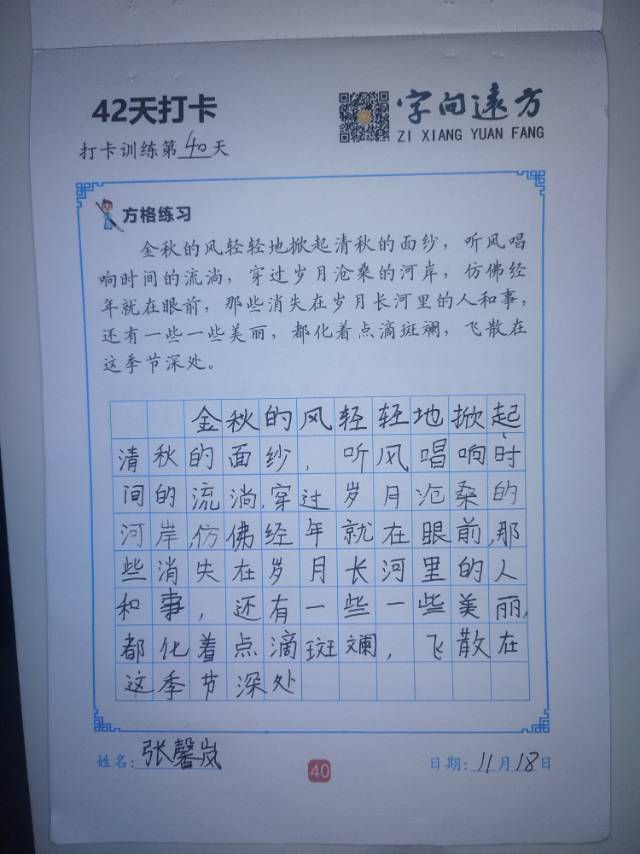 42天打卡
字向遠方
ZI XIANG YUAN FANG
打卡训练第40天
方格练习
金秋的风轻轻地掀起清秋的面纱，听风唱
响时间的流淌，穿过岁月沧桑的河岸，仿佛经
年就在眼前，那些消失在岁月长河里的人和事，
还有一些一些美丽，都化着点滴斑斓，飞散在
这季节深处。
金秋的风轻轻地掀起
清秋的面纱，听风唱响时
间的流淌，穿过岁月沧桑的
河岸，仿佛经年就在眼前，那
些消失在岁月长河里的人
和事，还有一些一些美丽，
都化着点滴斑斓，飞散在
这季节深处
姓名：张馨岚
40
日期：11月18日